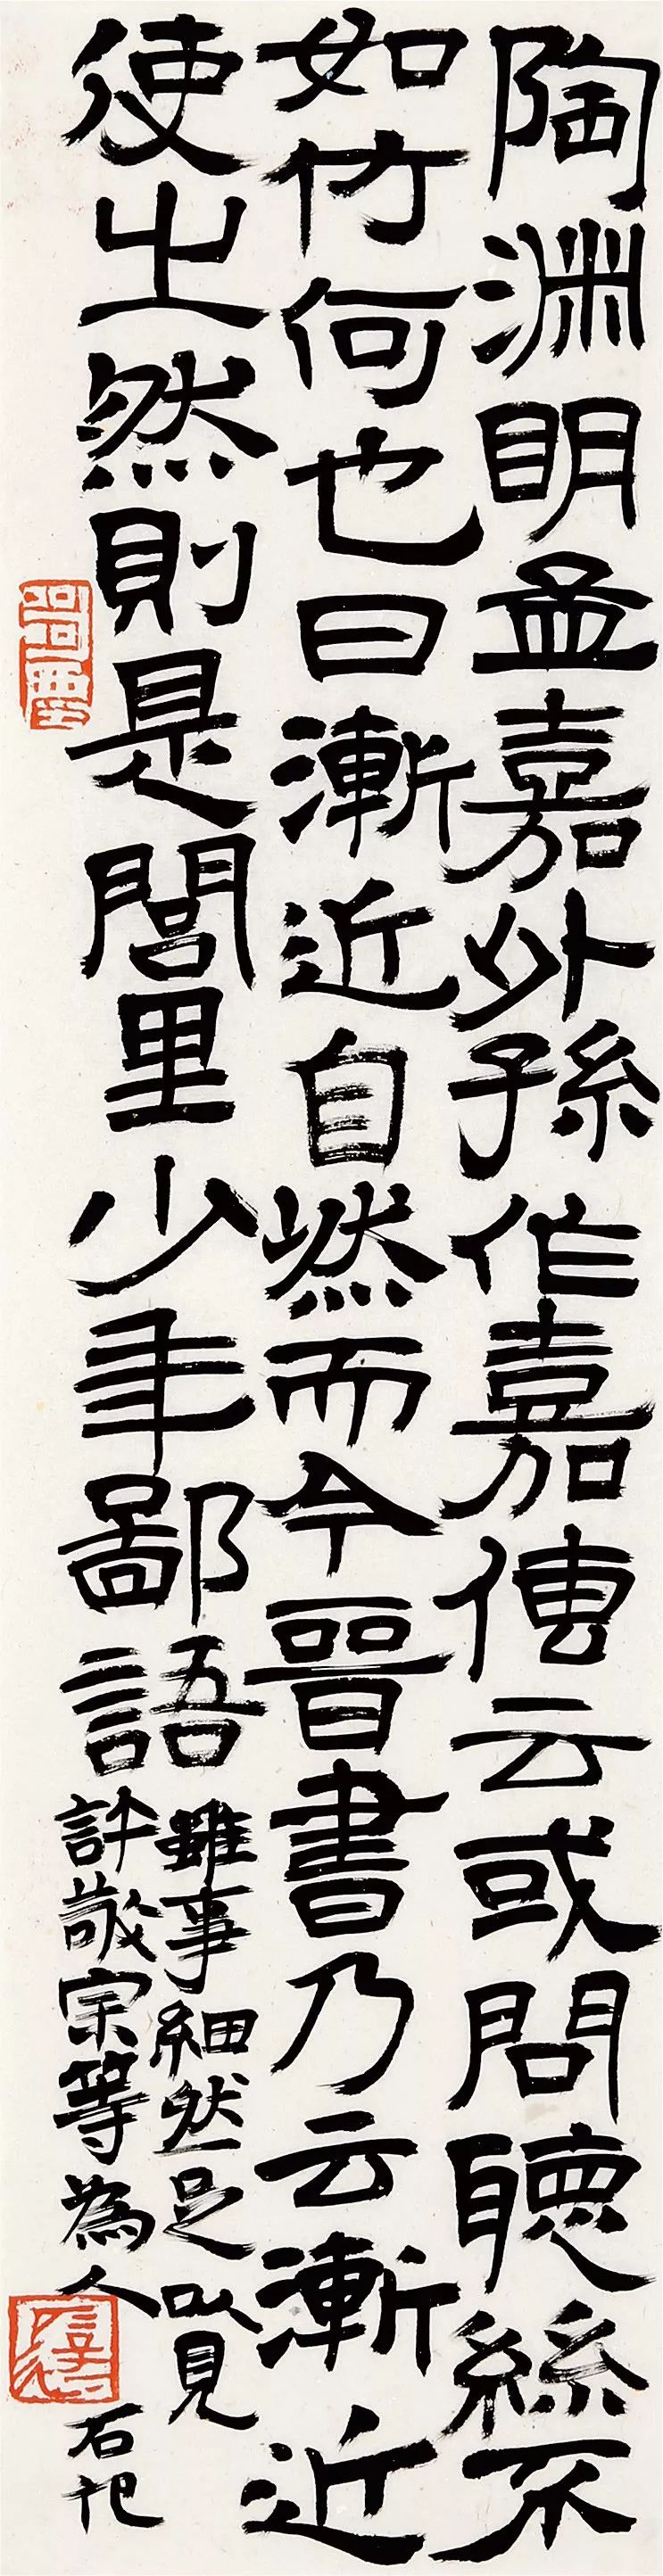 陶渊明孟嘉外孫作嘉傳云或問聽絲不
如竹何也曰漸近自然而今晉書乃云漸近
使之然則是閭里少年鄙語
雖事細然足以見
許敬宗等為人